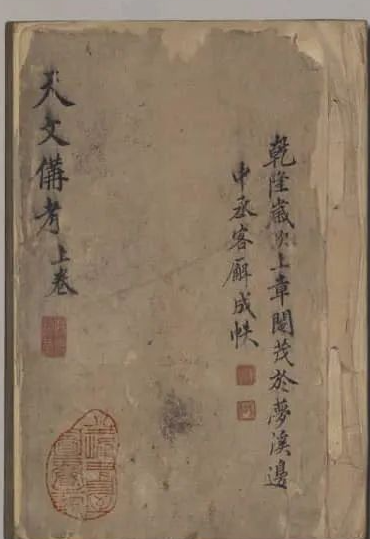 乾隆歲次上章閹茂於夢溪邊
中丞客廨成帙
天文備考上卷